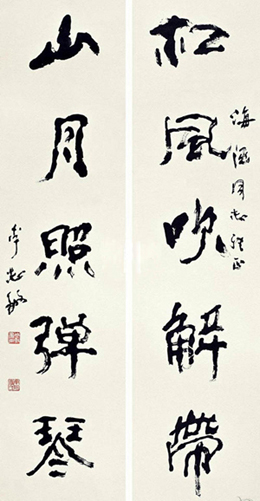 松风吹解带
海涵同志雅正
山月照弹琴
李志敏